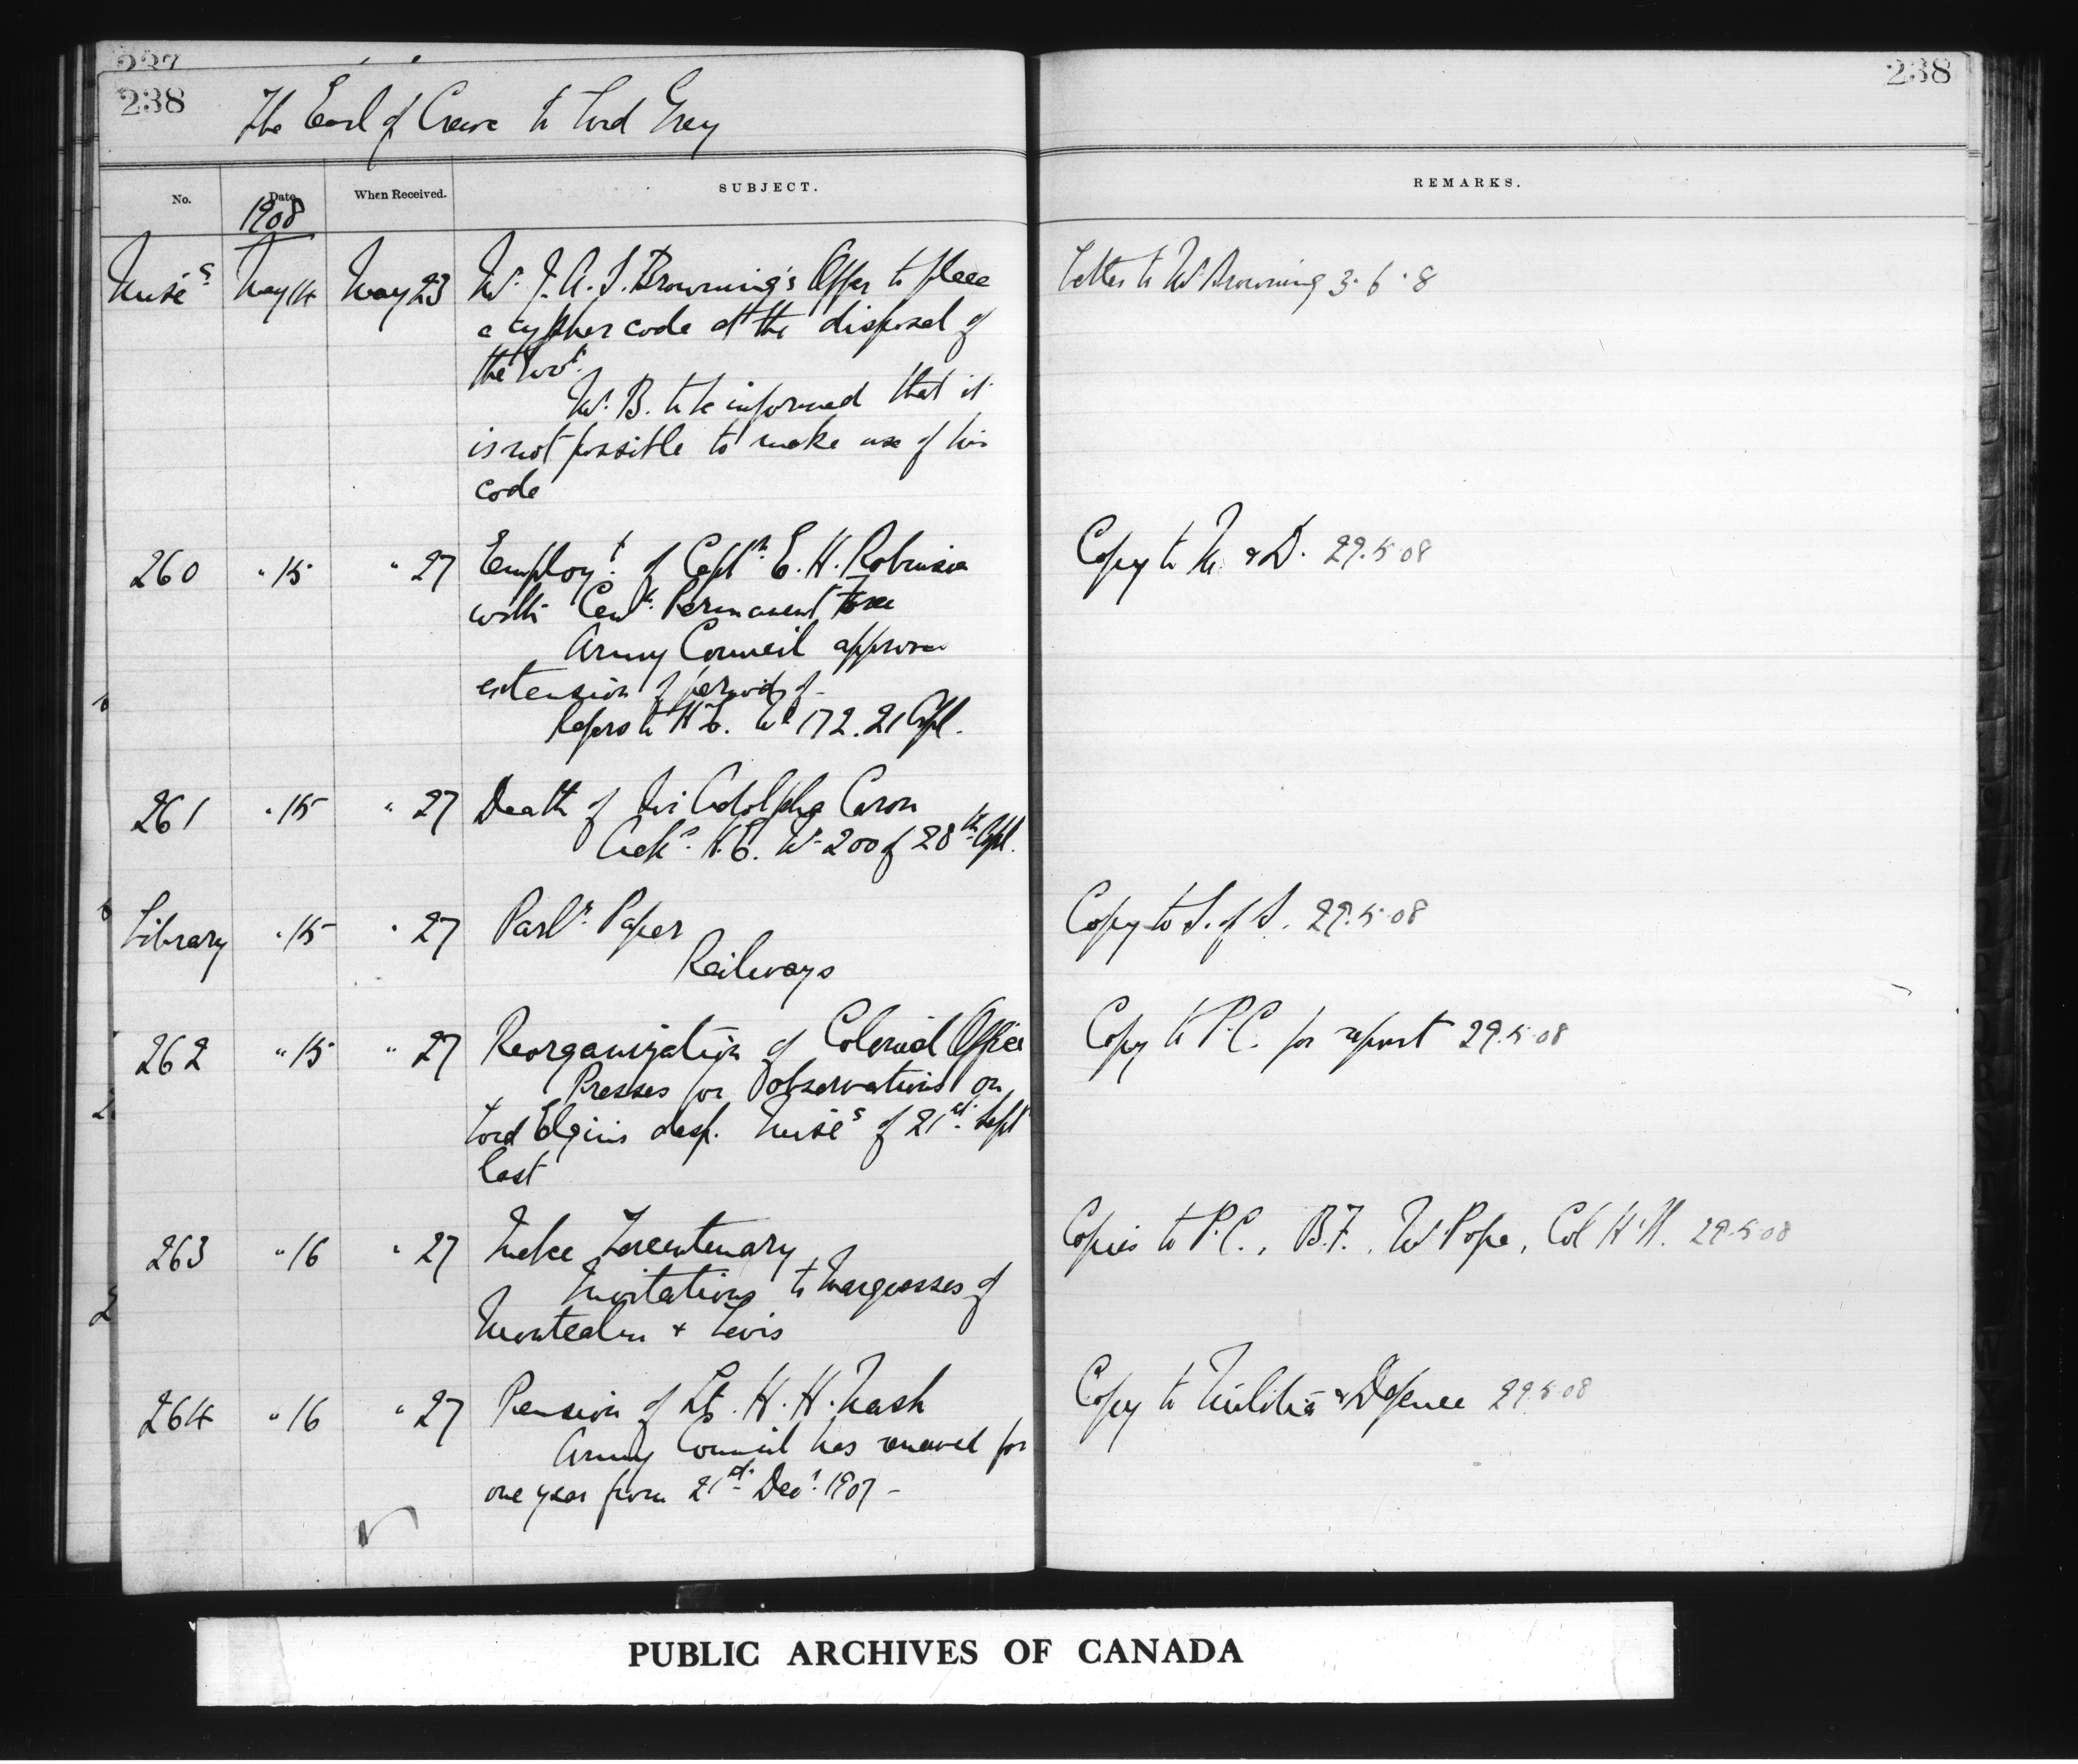 237
238
238
The Earl of Crewe to Lord Grey
No.
Date
When Received.
SUBJECT.
REMARKS.
1908
Misc s May 14 May 23 Mr. J. A. S. Browning's Offer to place
Letter to Mr Browning 3.6.8
a cypher code at the disposal of
the Govt.
Mr. B. to be informed that it
is not possible to make use of his
code
260 " 15 " 27 Employt. of Captn. E. H. Robinson
Copy to M. & D. 29.5.08
with Permanent Force
Army Council approve
extension of period of -
Refers to H.E. No 172. 21 Apl.
261 " 15 " 27 Death of Sir Adolphe Caron
Acks. H.E. No 200 of 28th Apl.
Library " 15 " 27 Parly. Paper
Copy to S. of S. 29.5.08
Railways
262 " 15 " 27 Reorganization of Colonial Office
Copy to P.C. for report 29.5.08
Presses for observations on
Lord Elgin's desp. Misc s of 21st Sept
last
263 " 16 " 27 Quebec Tercentenary
Copies to P.C., B.F., Mr Pope, Col H.N. 29.5.08
Invitations to Marquesses of
Montcalm & Levis
264 " 16 " 27 Pension of Lt. H. H. Nash
Copy to Militia & Defence 29.5.08
Army Council has renewed for
one year from 21st Decr. 1907 -
PUBLIC ARCHIVES OF CANADA